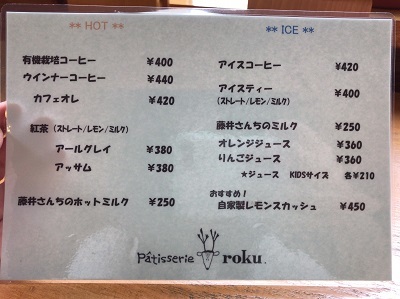 ** HOT **
有機栽培コーヒー ¥400
ウインナーコーヒー ¥440
カフェオレ ¥420
紅茶 (ストレート/レモン/ミルク)
アールグレイ ¥380
アッサム ¥380
藤井さんちのホットミルク ¥250
** ICE **
アイスコーヒー ¥420
アイスティー ¥400
(ストレート/レモン/ミルク)
藤井さんちのミルク ¥250
オレンジジュース ¥360
りんごジュース ¥360
★ジュース KIDSサイズ 各¥210
おすすめ!
自家製レモンスカッシュ ¥450
Pâtisserie roku.